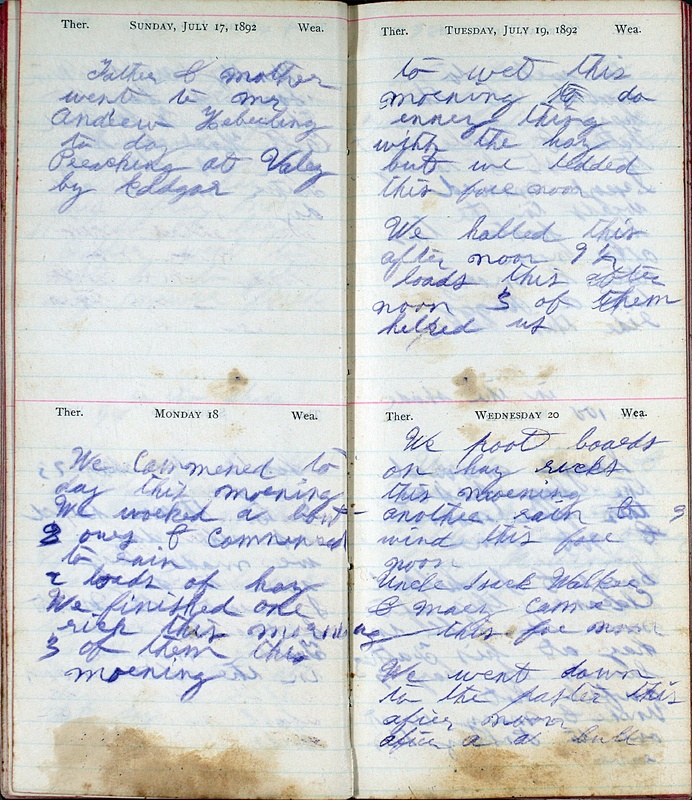 Ther. SUNDAY, JULY 17, 1892 Wea.
Father & mother
went to Mr
Andrew Heberling
to day
Preaching at Valey
by Eddgar
Ther. MONDAY 18 Wea.
We Commened to
day this morning
We worked a bout
2 ours & Commenced
to rain
2 loads of hay
We finished one
rick this morning
3 of them this
morning
Ther. TUESDAY, JULY 19, 1892 Wea.
to wet this
morning to do
enner thing
with the hay
but we tedded
this fore noon
We halled this
after noon 9 1/2
loads this after
noon 3 of them
helped us
Ther. WEDNESDAY 20 Wea.
We poot boards
on hay ricks
this morning
another rain &
wind this fore
noon
Uncle Walker
& mary came
this fore noon
We went down
to the paster this
after noon
after a bull